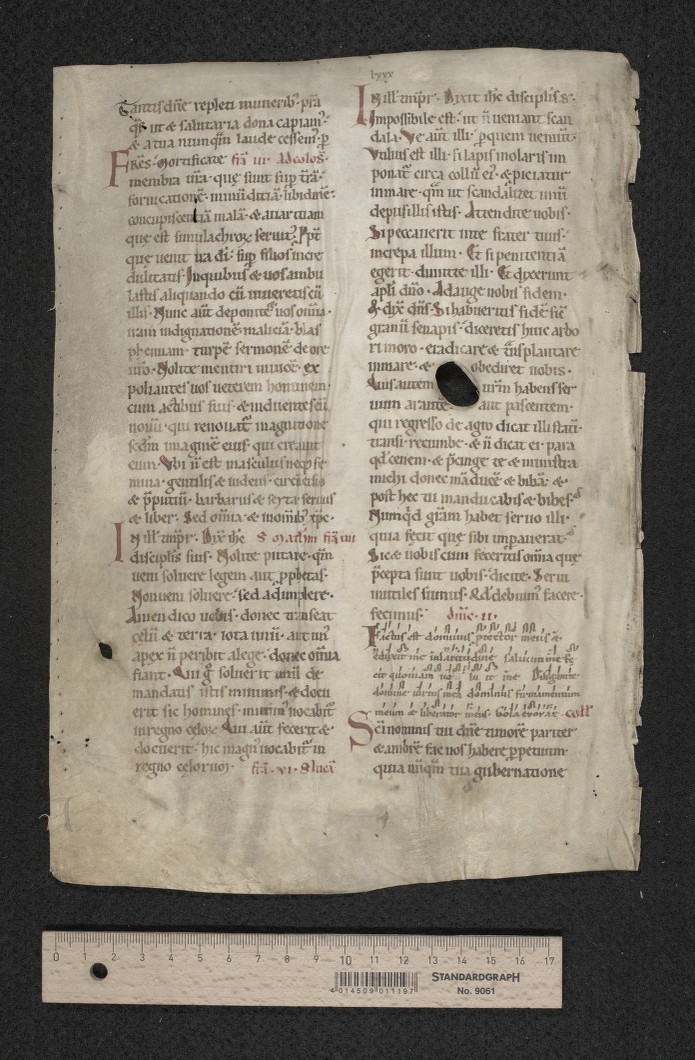 lxxx
Tantis dn̄e repleti munerib; p̄sta
q̄s ut & salutaria dona capiam᷒·
& a tua numq̄m laude cessem᷒· p̄
Fr̄es· Mortificate fr̄a iii· Ad colos̄·
membra ur̄a· quę sunt sup̄ tr̄ā·
fornicationē· inmūditiā· libidinē·
concupiscentiā malā· & auaritiam
que est simulachroꝝ seruit᷒· Ꝓpt̄
que uenit ira dī· sup̄ filios incre
dulitatis· Inquibus & uos ambu
lastis aliquando cū uiueretis cū
illis· Nunc aūt deponite & uos om̄ia·
iram indignationē· maliciā· blas
phemiam· turpē sermonē de ore
ur̄o· Nolite mentiri inuicē· ex
poliantes uos ueterem hominem·
cum actibus suis· & induentes eū
nouū· qui renouat᷒ in agnitione
scd̄m imaginē eius· qui creauit
eum· Vbi n̄ est masculus neq; fe
mina· gentilis & iudeus· circūcisio
& p̄putiū· barbarus & scyta· seruus
& liber· Sed om̄ia· & in om̄ib; xp̄c·
In ill· tmp̄r· Dix̄ ih̄c S Mathm̄ fr̄a iiii
disciplis̄ suis· Nolite putare· qm̄
ueni soluere legem aut p̄phetas·
Non ueni soluere· sed adimplere·
Amen dico uobis· donec transeat
celū & terra· iota unū· aut un᷒
apex n̄ peribit a lege· donec om̄ia
fiant· Qui g̊ soluerit unū de
mandatis istis minimis· & docu
erit sic homines· minim᷒ uocabit᷒
in regno celoꝝ· Qui aūt fecerit &
docuerit· hic magn᷒ uocabit᷒ in
regno celorum· fr̄a· vi· S lucā
In ill· tmp̄r· Dixit ih̄c disciplis̄ s·
Impossibile est· ut n̄ ueniant scan
dala· Ve aūt illi· p̄ quem ueniūt·
Vtilius est illi· si lapis molaris im
ponat᷒ circa collū ei᷒· & piciatur
in mare· qm̄ ut scandalizet unū
de pusillis istis· Attendite uobis·
Si peccauerit in te frater tuus·
increpa illum· Et si penitentiā
egerit· dimitte illi· Et dixerunt
apl̄i dn̄o· Adauge nobis fidem·
& dix̄ dn̄s· Si habueritis fidē sic̄
granū senapis· diceretis huic arbo
ri moro· eradicare & tn̄splantare
in mare· & obediret uobis·
Quis autem ur̄m habens ser
uum arantē aut pascentem·
qui regresso de agro dicat illi statī·
transi recumbe· & n̄ dicat ei· para
qd̄ cenem· & p̄cinge te & ministra
michi donec māducē & bibā· &
post hec tu manducabis & bibes·
Numq̄d grām habet seruo illi·
quia fecit quę sibi impauerat·
Sic & uobis cum feceritis om̄ia que
p̄cepta sunt uobis· dicite· Serui
inutiles sumus· qd̄ debuim᷒ facere·
fecimus· Dn̄ic· ii·
Factus est dominus p̄tector meus &
eduxit me in latitudine saluum me fe
cit quoniam uo lu it me Diligam te
domine uirtus mea dominus firmamentum
meum & liberator meus· Gl̄a euouae· coll̄
Sc̄i nominis tui dn̄e timorē pariter
& amorē fac nos habere p̄petuum·
quia nūq̄m tua gubernatione
0 1 2 3 4 5 6 7 8 9 10 11 12 13 14 15 16 17
4 014509 011197
STANDARDGRAPH
No. 9061